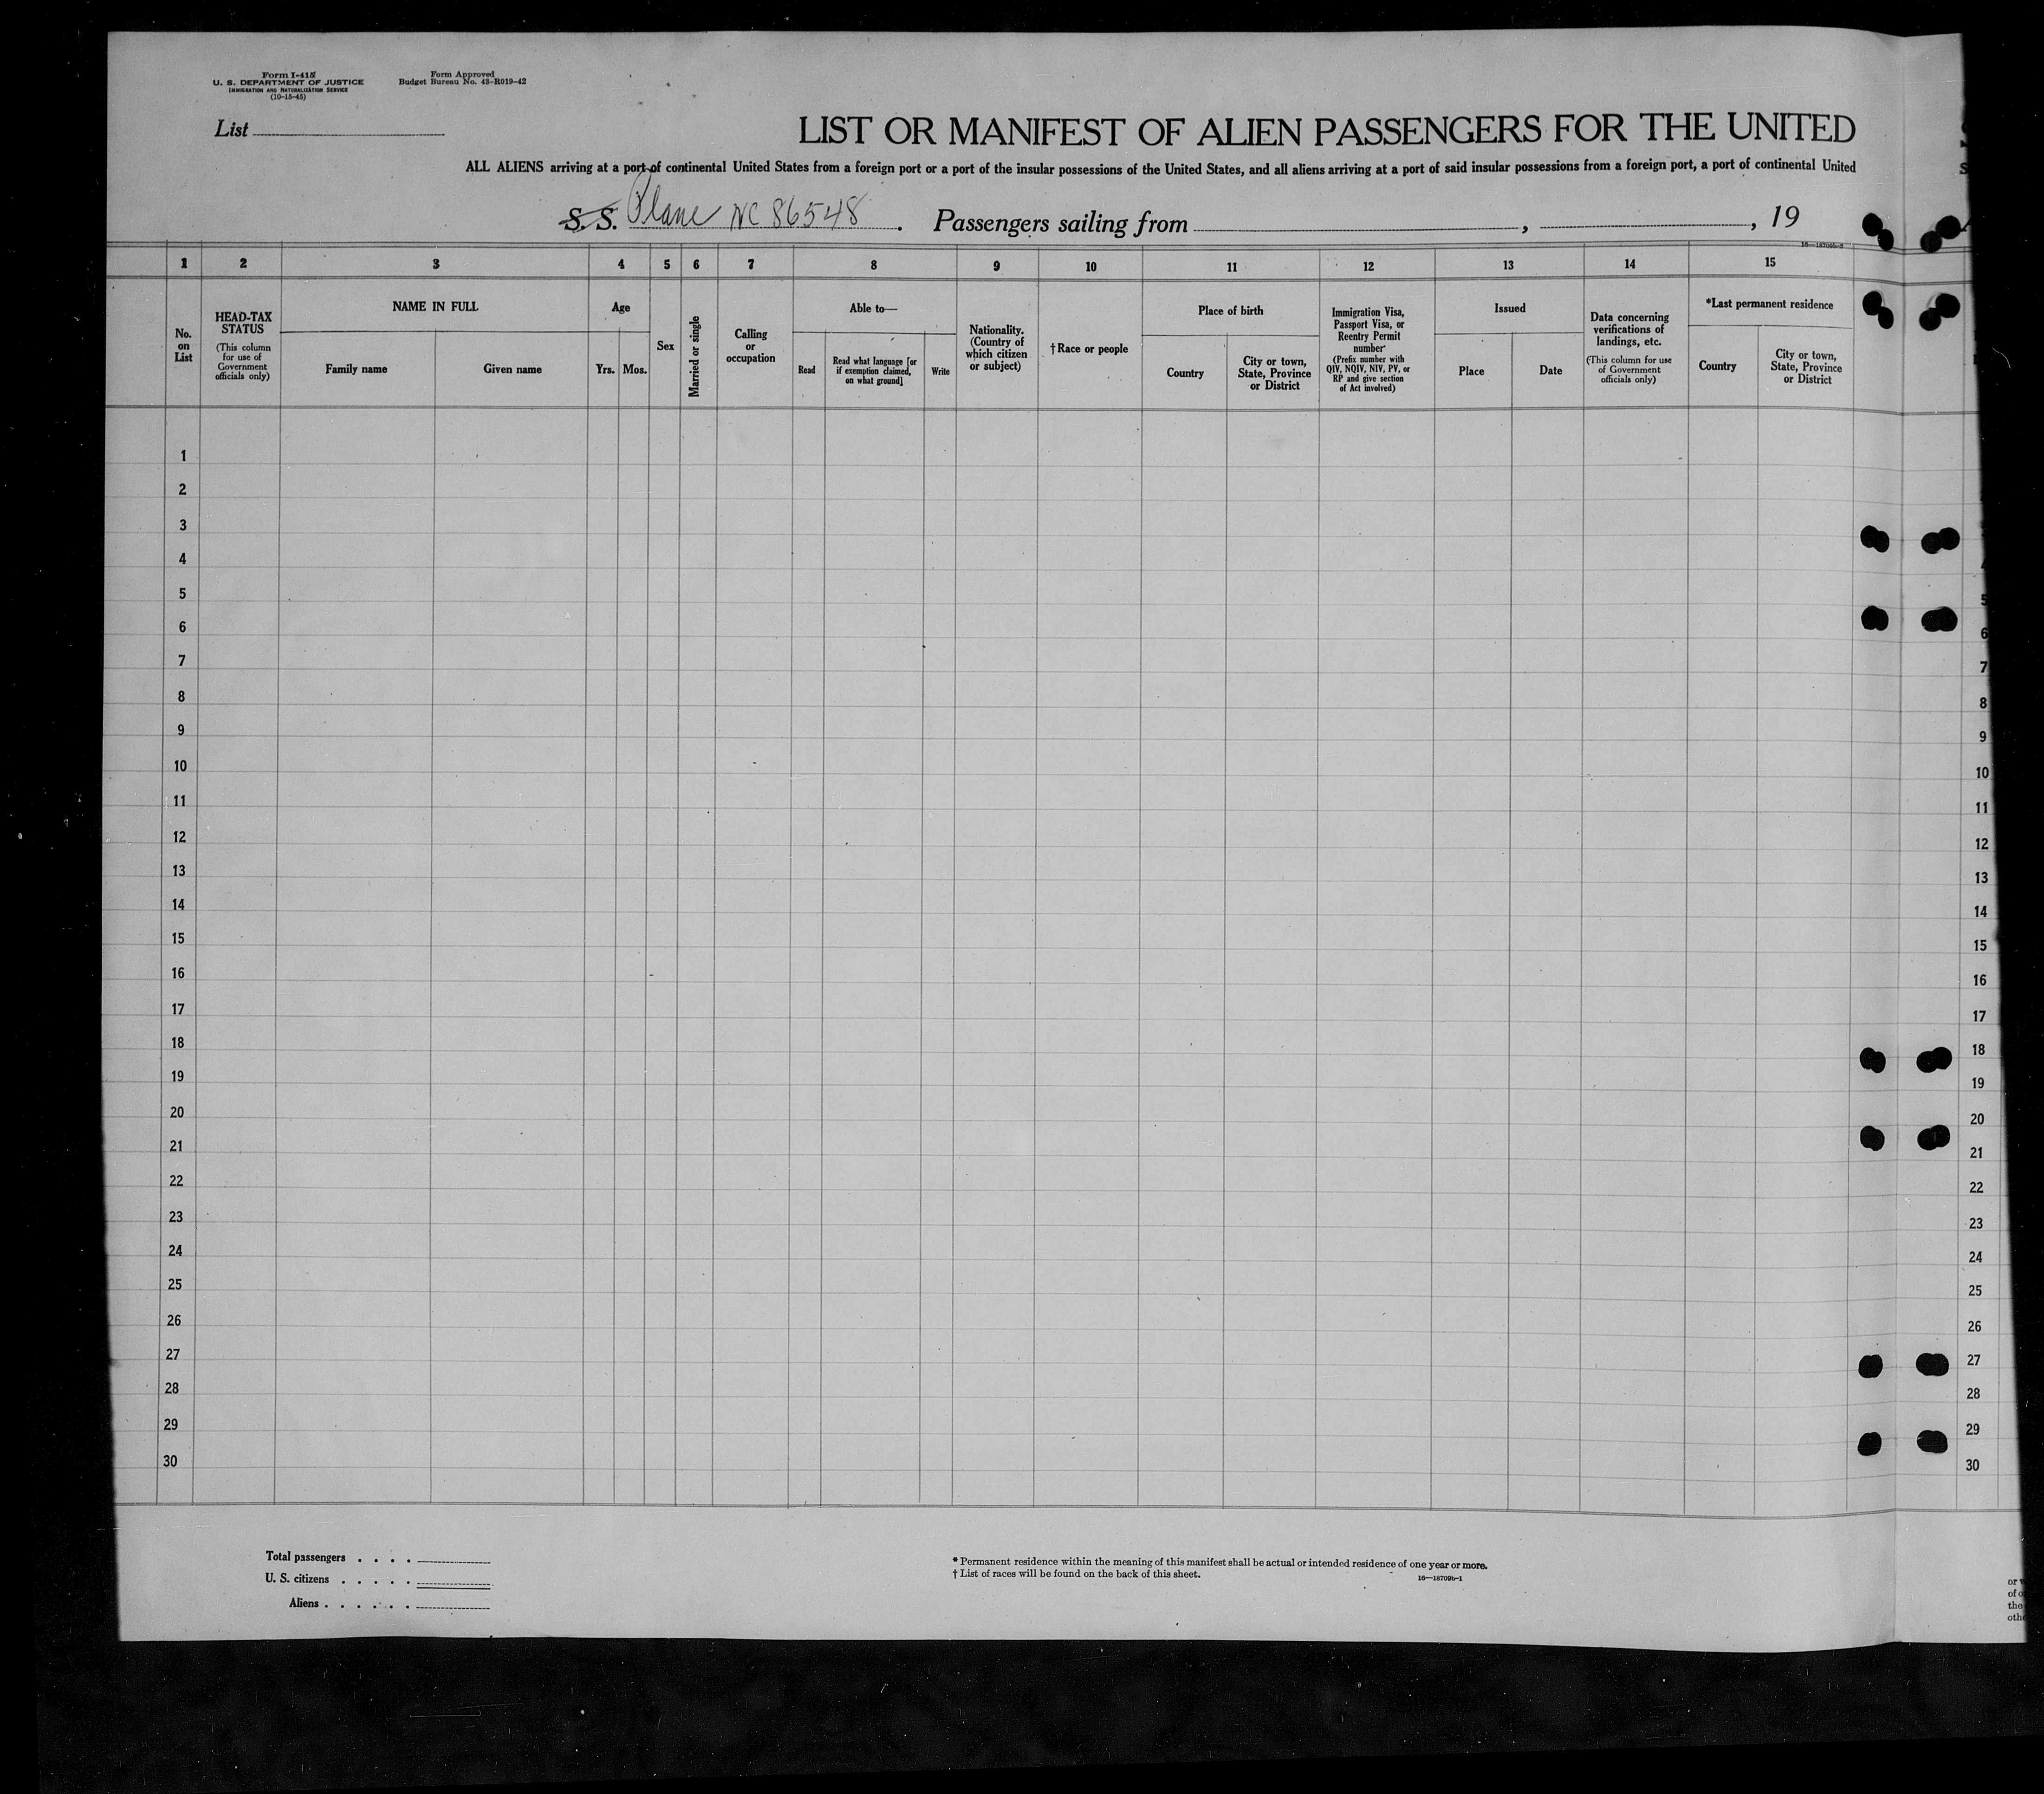 Form I-415
U. S. DEPARTMENT OF JUSTICE
IMMIGRATION AND NATURALIZATION SERVICE
(10-15-45)
Form Approved
Budget Bureau No. 43-R019-42
List
LIST OR MANIFEST OF ALIEN PASSENGERS FOR THE UNITED
ALL ALIENS arriving at a port of continental United States from a foreign port or a port of the insular possessions of the United States, and all aliens arriving at a port of said insular possessions from a foreign port, a port of continental United
S. S. Plane NC 86548. Passengers sailing from , , 19
16—18709b-2
1 2 3 4 5 6 7 8 9 10 11 12 13 14 15
No.
on
List
HEAD-TAX
STATUS
(This column
for use of
Government
officials only)
NAME IN FULL
Family name
Given name
Age
Yrs.
Mos.
Sex
Married or single
Calling
or
occupation
Able to—
Read
Read what language [or
if exemption claimed,
on what ground]
Write
Nationality.
(Country of
which citizen
or subject)
†Race or people
Place of birth
Country
City or town,
State, Province
or District
Immigration Visa,
Passport Visa, or
Reentry Permit
number
(Prefix number with
QIV, NQIV, NIV, PV, or
RP and give section
of Act involved)
Issued
Place
Date
Data concerning
verifications of
landings, etc.
(This column for use
of Government
officials only)
*Last permanent residence
Country
City or town,
State, Province
or District
1
2
3
4
5 5
6 6
7 7
8 8
9 9
10 10
11 11
12 12
13 13
14 14
15 15
16 16
17 17
18 18
19 19
20 20
21 21
22 22
23 23
24 24
25 25
26 26
27 27
28 28
29 29
30 30
Total passengers . . . .
U. S. citizens . . . . .
Aliens . . . . . .
* Permanent residence within the meaning of this manifest shall be actual or intended residence of one year or more.
† List of races will be found on the back of this sheet.
16—18709b-1
of
the